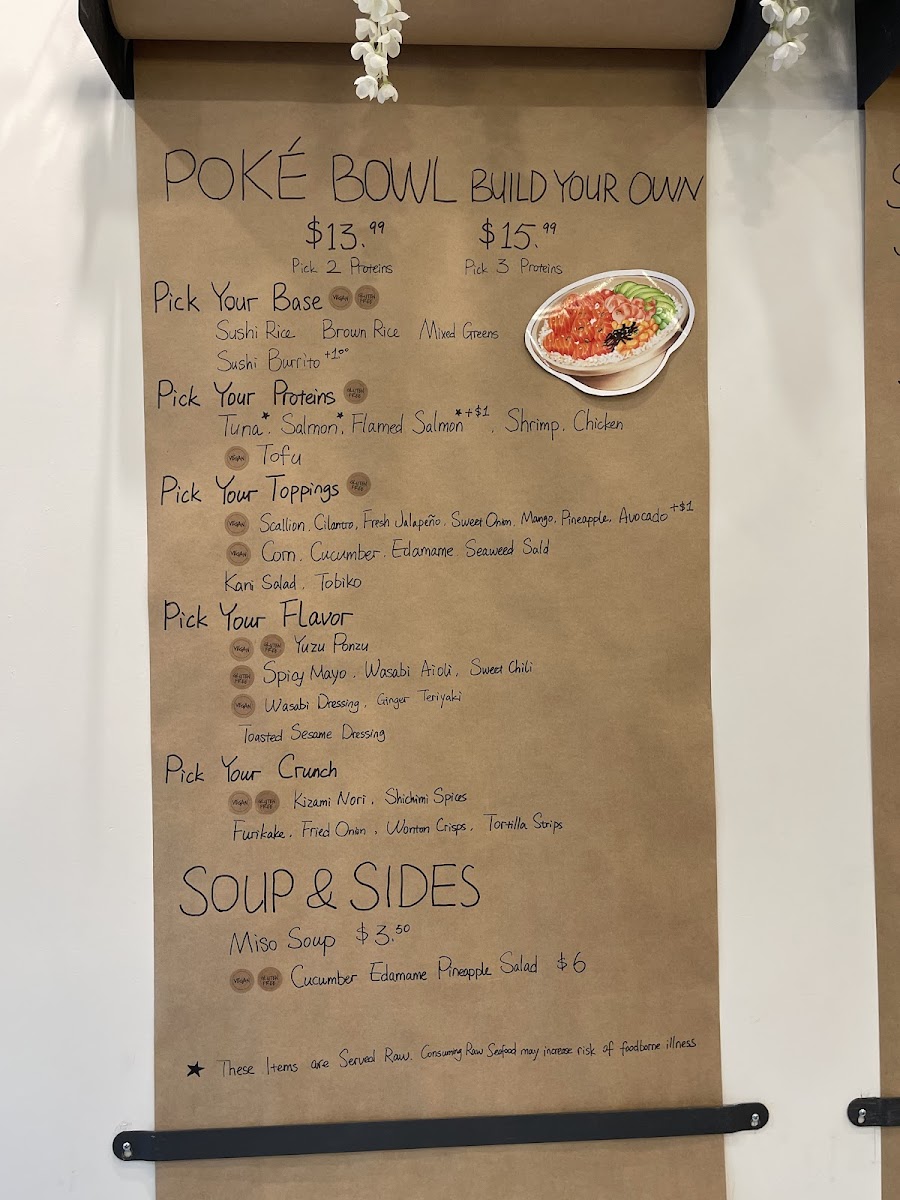 POKÉ BOWL BUILD YOUR OWN
$13.99 $15.99
Pick 2 Proteins Pick 3 Proteins
Pick Your Base VEGAN GLUTEN FREE
Sushi Rice Brown Rice Mixed Greens
Sushi Burrito +1.00
Pick Your Proteins GLUTEN FREE
Tuna★. Salmon★. Flamed Salmon★+$1. Shrimp. Chicken
VEGAN Tofu
Pick Your Toppings GLUTEN FREE
VEGAN Scallion. Cilantro, Fresh Jalapeño. Sweet Onion. Mango. Pineapple. Avocado+$1
VEGAN Corn. Cucumber. Edamame Seaweed Sald
Kani Salad. Tobiko
Pick Your Flavor
VEGAN GLUTEN FREE Yuzu Ponzu
GLUTEN FREE Spicy Mayo. Wasabi Aioli. Sweet Chili
VEGAN Wasabi Dressing. Ginger Teriyaki
Toasted Sesame Dressing
Pick Your Crunch
VEGAN GLUTEN FREE Kizami Nori. Shichimi Spices
Furikake. Fried Onion, Wonton Crisps. Tortilla Strips
SOUP & SIDES
Miso Soup $3.50
VEGAN GLUTEN FREE Cucumber Edamame Pineapple Salad $6
★ These Items are Served Raw. Consuming Raw Seafood may increase risk of foodborne illness